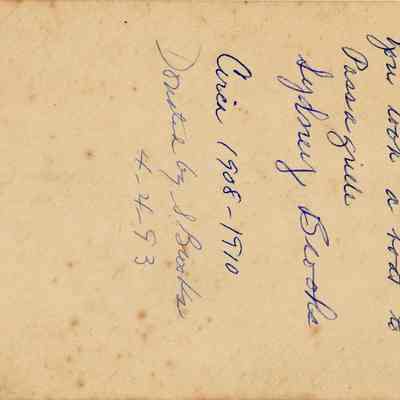 You took a boat to
Passagrille
Sydney Brooks
Circa 1908-1910
Donated by S Brooks
4-4-93